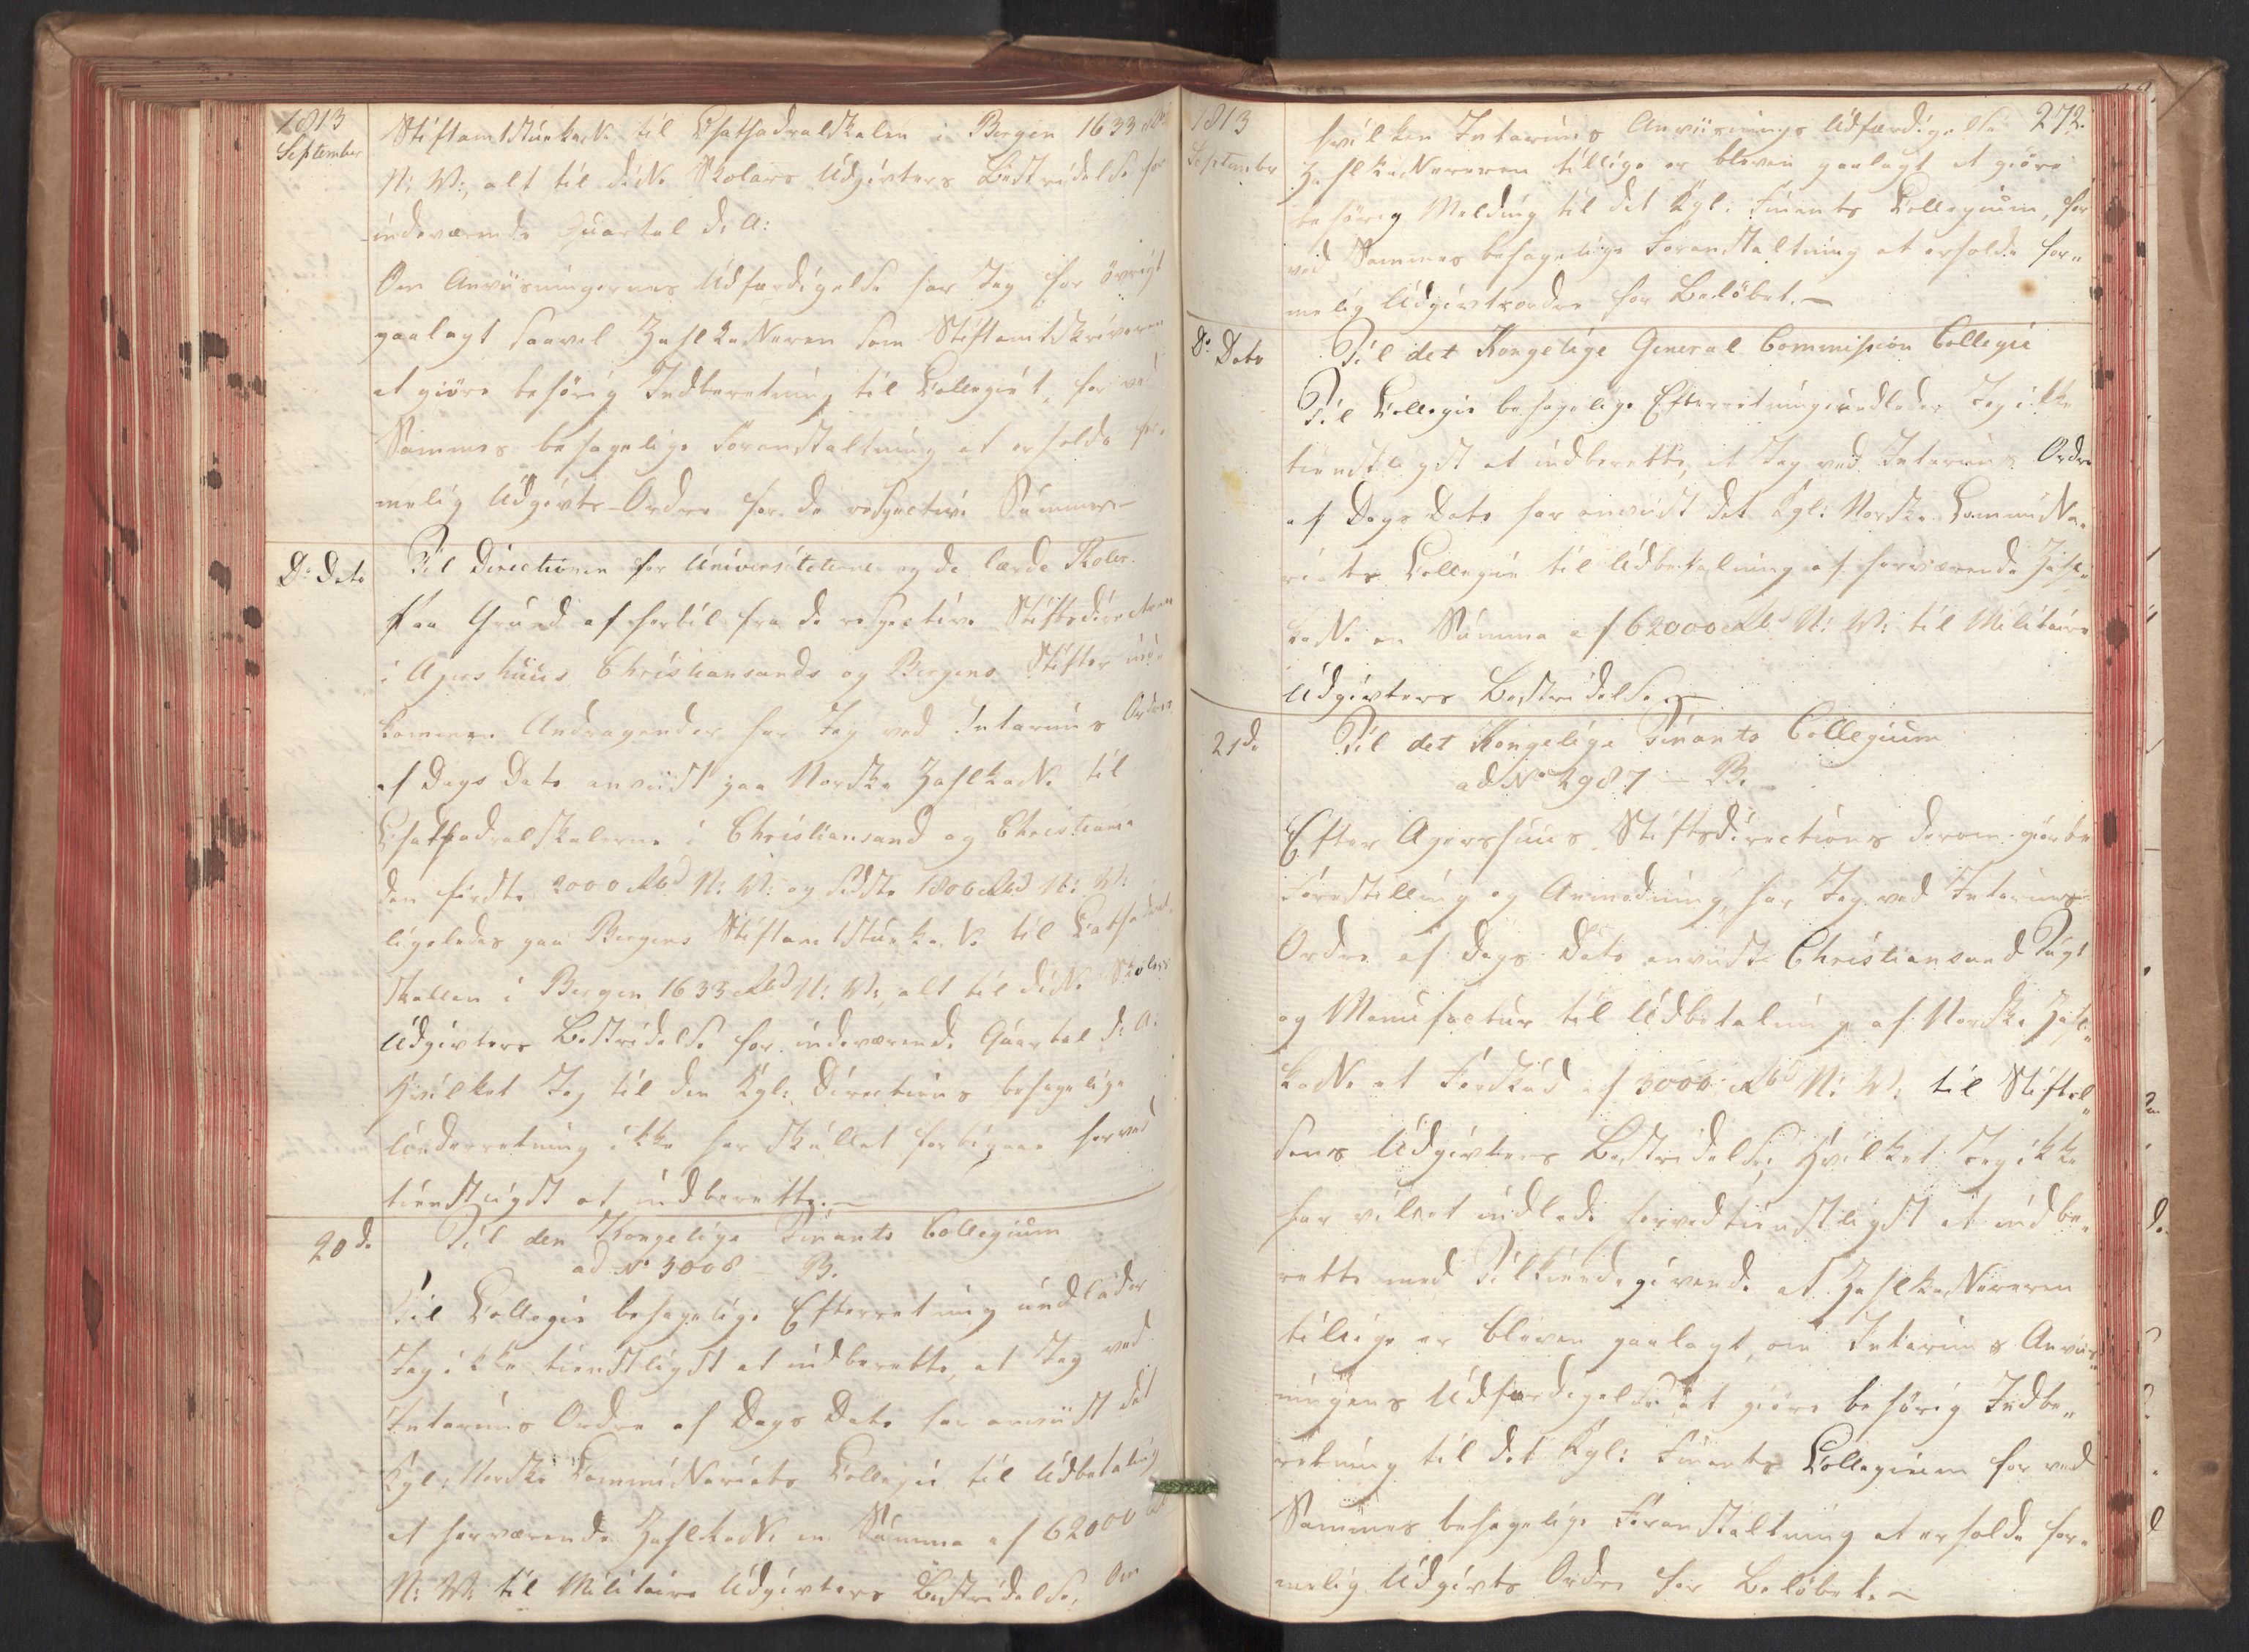 1813
September
Stiftamtstuekasse til Chathedralskolen i Bergen 1633 Rbd
N: V:, alt til disse Skolers Udgivters Bestridelse for
indeværende Quartal d: A:
Om Anviisningernes Udfærdigelse har Jeg for øvrigt
paalagt saavel Zahlkasseren som Stiftamtskriveren
at giøre behörig Indberetning til Collegiet, for ved
Sammes behagelige Foranstaltning at erholde for-
melig Udgivts-Ordre for de respective Summer.-
D: Dato
Til Directionen for Universitetene og de lærde Skoler.
Paa Grund af hertil fra de respective Stiftsdirectioner
i Agershuus Christiansands og Bergens Stifter ind-
komne Andragender har Jeg ved Interims Ordre
af Dags Dato anviist paa Norske Zahlkasse til
Chathedralskolerne i Christiansand og Christiania
den første 2000 Rbd N: V: og sidste 1806 Rbd N: V:
ligeledes paa Bergens Stiftamtstuekasse til Cathedral-
skolen i Bergen 1633 Rbd N: V:, alt til disse Skolers
Udgivters Bestridelse for indeværende Qvartal d: A:
Hvilket Jeg til den Kgl: Directions behagelige
Underretning ikke har skullet forbigaae herved
tienstligst at indberette.-
20 d:
Til den Kongelige Finants Collegium
ad No 3008 - B.
Til Collegie behagelige Efterretning undlader
Jeg ikke tienstligst at indberette, at Jeg ved
Interims Ordre af Dags Dato har anviist det
Kgl: Norske Commissariats Collegie til Udbetaling
af herværende Zahlkasse en Summa af 62000 Rbd
N: V: til Militaire Udgivters Bestridelse, Om
1813
September
272.
hvilken Interims Anviisnings Udfærdigelse
Zahlkasseren tillige er bleven paalagt at giöre
behörig Melding til det Kgl: Finants Collegium, for
ved Sammes behagelige Foranstaltning at erholde for-
melig Udgivtsordre for Belöbet.-
D: Dato
Til det Kongelige General Commission Collegie
Til Collegie behagelige Efterretning undlader Jeg ikke
tienstligst at indberette, at Jeg ved Interims Ordre
af Dags Dato har anviist det Kgl: Norske Commissa-
riats Collegie til Udbetaling af herværende Zahl-
kasse en Summa af 62000 Rbd N: V: til Militaire
Udgivters Bestridelse.-
21 d:
Til det Kongelige Finants Collegium
ad No 2987 - B.
Efter Agershuus Stiftsdirections derom giorte
Forestilling og Anmodning, har Jeg ved Interims
Ordre af Dags Dato anviist Christiansand Tugt
og Manufactur til Udbetaling af Norske Zahl-
kasse et Forskud af 3000 Rbd N: V: til Stiftel-
sens Udgivters Bestridelse; Hvilket Jeg ikke
har villet undlade herved tienstligst at indbe-
rette med Tilkiendegivende at Zahlkasseren
tillige er bleven paalagt, om Interims Anviis-
ningens Udfærdigelse at giöre behörig Indbe-
retning til det Kgl: Finants Collegium for ved
Sammes behagelige Foranstaltning at erholde for-
melig Udgivts Ordre for Belöbet.-